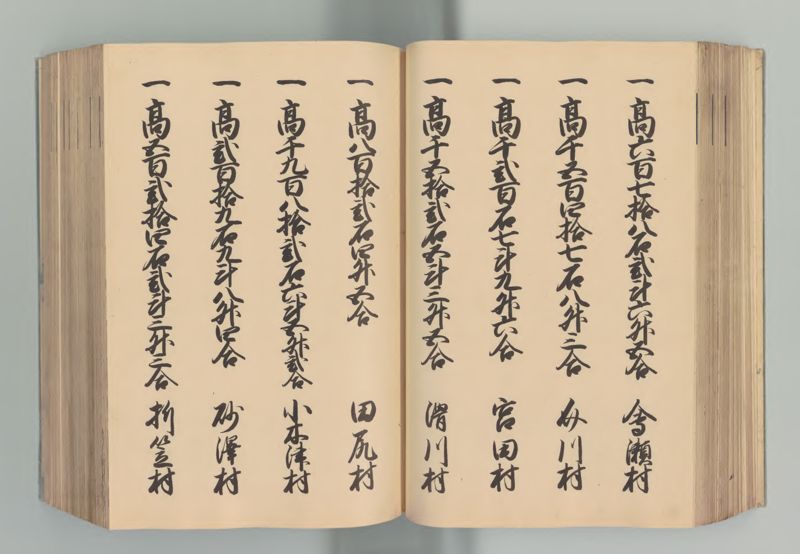 一 高六百七拾八石弐斗六升五合 會瀬村
一 高千五百四拾七石八升三合 助川村
一 高千弐百石七斗九升六合 宮田村
一 高千五拾弐石五斗三升五合 滑川村
一 高八百拾弐石四升五合 田尻村
一 高千九百八拾弐石六斗五升弐合 小木津村
一 高弐百拾九石九斗八升四合 砂澤村
一 高五百弐拾四石弐斗三升三合 折笠村